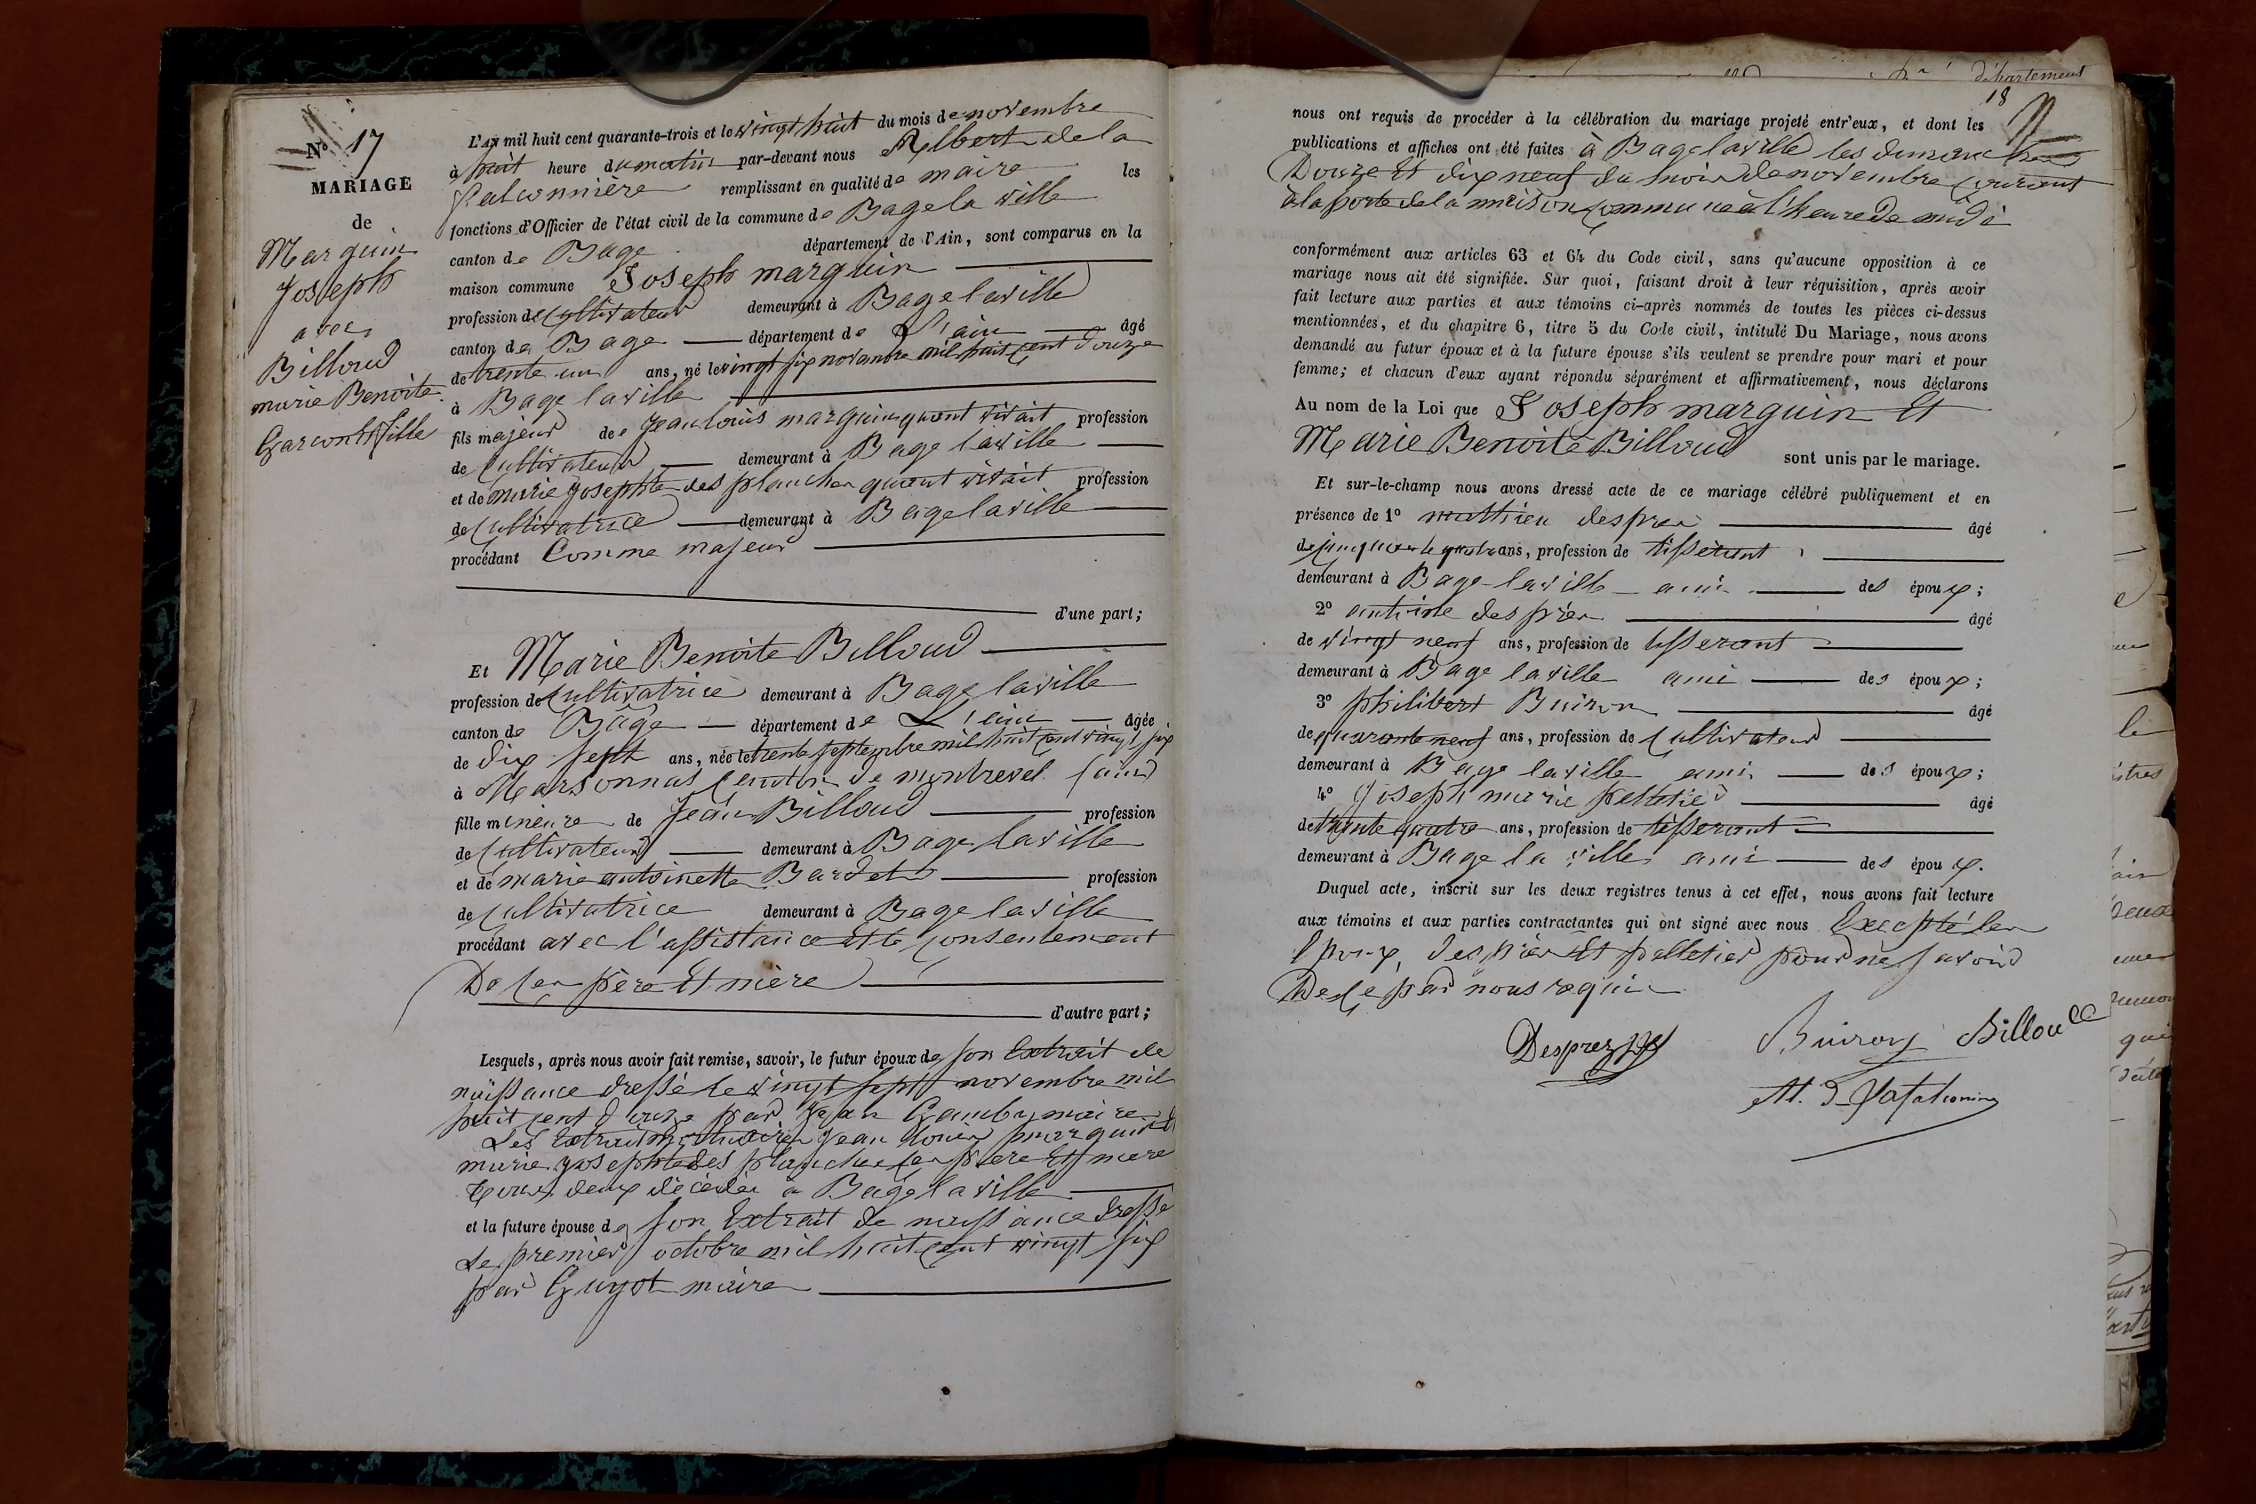 N° 17
MARIAGE
de
Marguin
Joseph
avec
Billoud
marie Benoite
Garcon et fille
L'AN mil huit cent quarante-trois et le vingt huit du mois de novembre
à huit heure du matin par-devant nous Albert de la
falconnière remplissant en qualité de maire les
fonctions d'Officier de l'état civil de la commune de Bage la ville
canton de Bage département de l'Ain, sont comparus en la
maison commune Joseph marguin
profession de Cultivateur demeurant à Bage laville
canton de Bage département de L'ain âgé
de trente un ans, né le vingt six novembre mil huit cent douze
à Bage laville
fils majeur de Jean louis marguin quant vivait profession
de Cultivateur demeurant à Bage laville
et de marie josephte des planches quant vivait profession
de Cultivatrice demeurant à Bage laville
procédant Comme majeur
d'une part;
Et Marie Benoite Billoud
profession de Cultivatrice demeurant à Bage laville
canton de Bâgé département de L'ain âgée
de dix sept ans, née le trente septembre mil huit cent vingt six
à Marsonnas Canton de montrevel (ain)
fille mineure de Jean Billoud profession
de Cultivateur demeurant à Bage laville
et de marie antoinette Bardet profession
de Cultivatrice demeurant à Bage laville
procédant avec l'assistance et le consentement
De ses père Et mère
d'autre part;
Lesquels, après nous avoir fait remise, savoir, le futur époux de son Extrait de
naissance dressé le vingt sept novembre mil
huit cent douze par Jean Gambu maire
Les Extraits mortuaires Jean louis marguin Et
marie josephte des planches ses père Et mere
tous deux décédés a Bagé laville
et la future épouse de son Extrait de naissance dressé
Le premier octobre mil huit cent vingt six
par Guyot maire
département
18
nous ont requis de procéder à la célébration du mariage projeté entr'eux, et dont les
publications et affiches ont été faites à Bage laville les dimanches
Douze Et dix neuf du mois de novembre courant
à la porte de la maison commune à l'heure de midi
conformément aux articles 63 et 64 du Code civil, sans qu'aucune opposition à ce
mariage nous ait été signifiée. Sur quoi, faisant droit à leur réquisition, après avoir
fait lecture aux parties et aux témoins ci-après nommés de toutes les pièces ci-dessus
mentionnées, et du chapitre 6, titre 5 du Code civil, intitulé Du Mariage, nous avons
demandé au futur époux et à la future épouse s'ils veulent se prendre pour mari et pour
femme; et chacun d'eux ayant répondu séparément et affirmativement, nous déclarons
Au nom de la Loi que Joseph marguin Et
Marie Benoite Billoud sont unis par le mariage.
Et sur-le-champ nous avons dressé acte de ce mariage célébré publiquement et en
présence de 1° mathieu despres âgé
de cinquante quatre ans, profession de tisserant
demeurant à Bage laville ami des époux;
2° antoine despres âgé
de vingt neuf ans, profession de tisserant
demeurant à Bage laville ami des époux;
3° philibert Buiron âgé
de quarante neuf ans, profession de Cultivateur
demeurant à Bage laville ami des époux;
4° Joseph marie pelletier âgé
de trente quatre ans, profession de tisserant
demeurant à Bage la ville ami des époux.
Duquel acte, inscrit sur les deux registres tenus à cet effet, nous avons fait lecture
aux témoins et aux parties contractantes qui ont signé avec nous Excepté les
Epoux, despres Et pelletier pour ne savoir
De ce par nous requis
Desprez Buiron Billoud